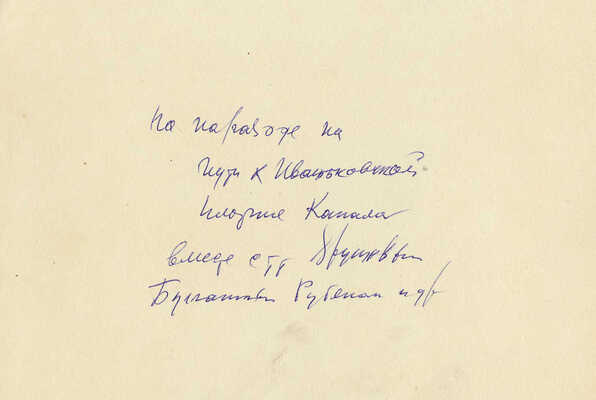 На пароходе на
пути к Иваньковской
плотине Канала
вместе с тт
Булганиным Рубеном и др